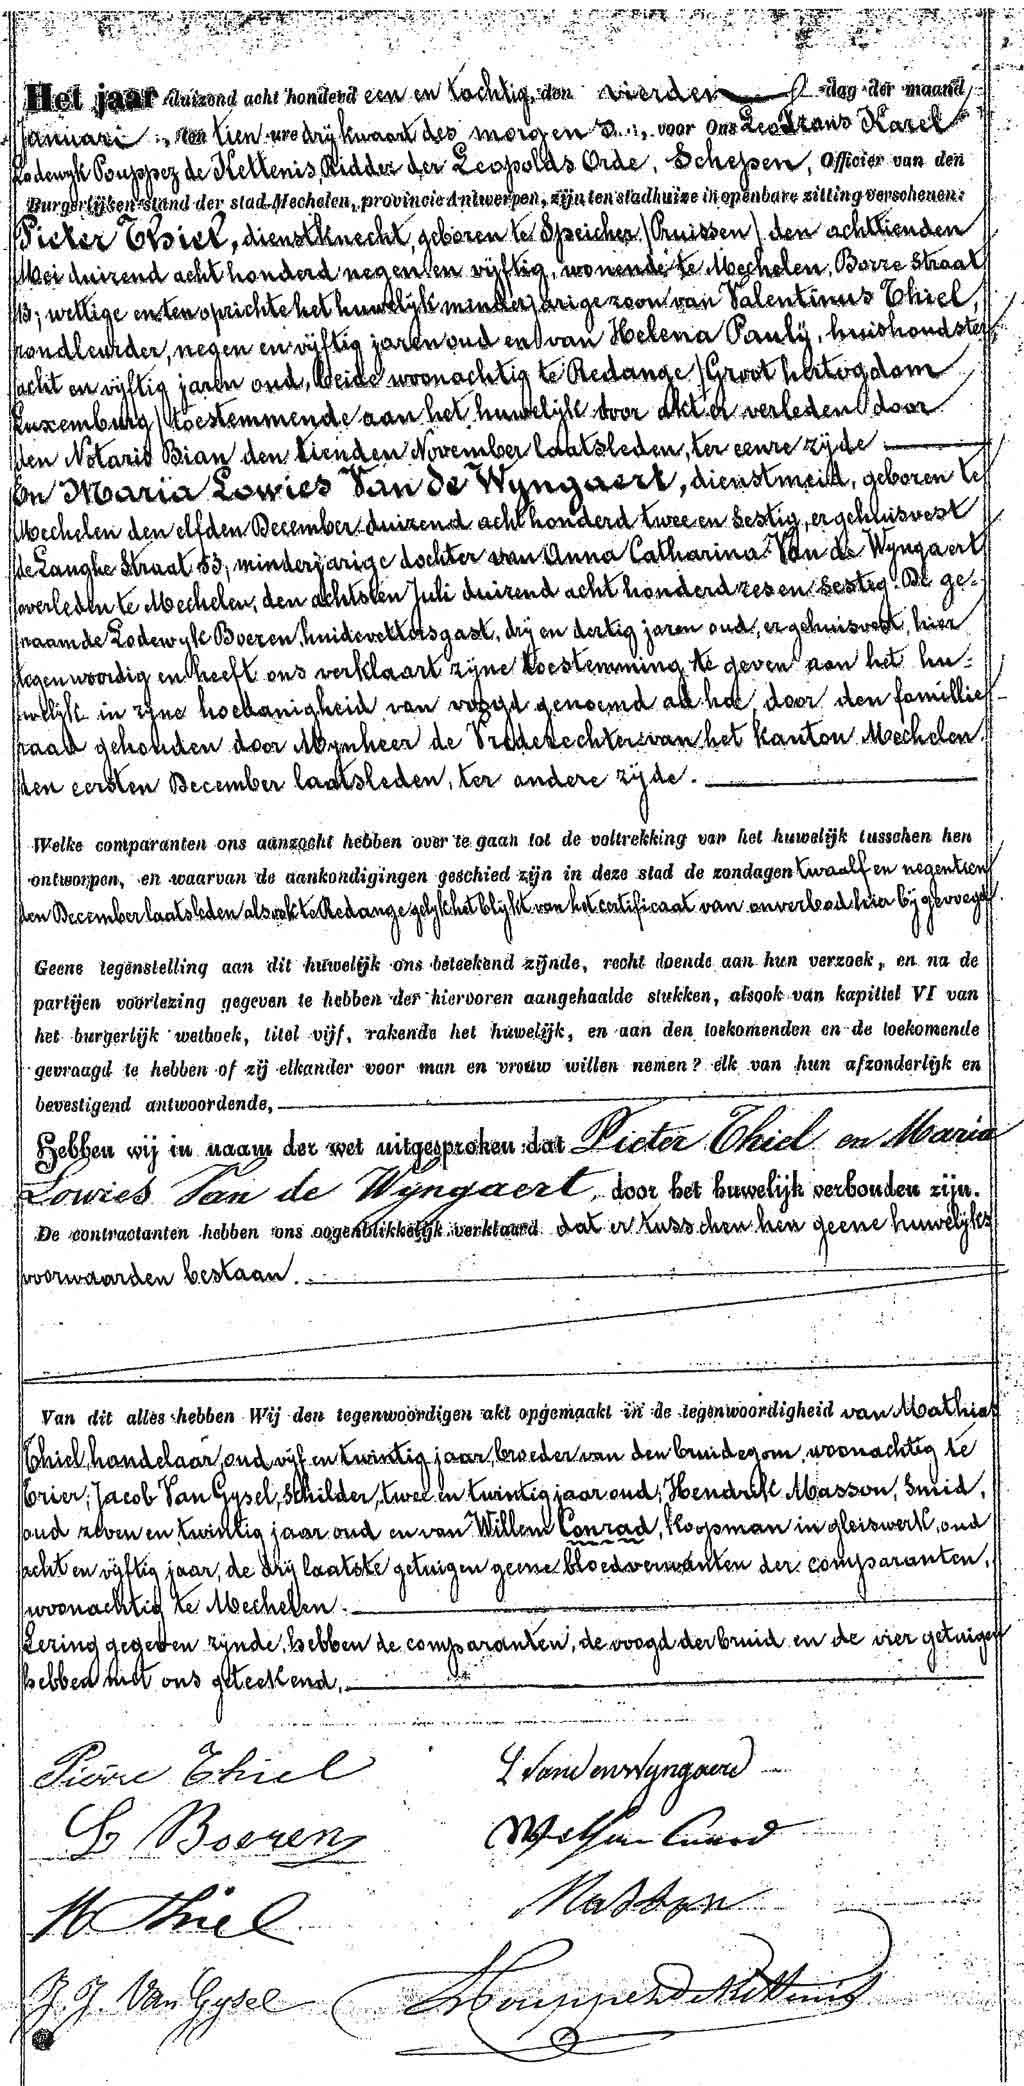 Het jaar duizend acht honderd een en tachtig, den vierden dag der maand
Januari, ten tien ure dry kwaart des morgens, voor Ons Leo Frans Karel
Lodewyk Pouppez de Kettenis, Ridder der Leopolds Orde, Schepen, Officier van den
Burgerlijken stand der stad Mechelen, provincie Antwerpen, zijn ten stadhuize in openbare zitting verschenen:
Pieter Thiel, dienstknecht, geboren te Speicher /Pruissen/ den achttienden
Mei duizend acht honderd negen en vyftig, wonende te Mechelen, Borre Straat
13; wettige en ten oprichte het huwelyk minderjarige zoon van Valentinus Thiel,
rondleurder, negen en vyftig jaren oud en van Helena Pauly, huishoudster
acht en vyftig jaren oud, beide woonachtig te Redange /Groot hertogdom
Luxemburg/ toestemmende aan het huwelyk voor akt er verleden door
den Notaris Bian den tienden November laatsleden, ter eenre zyde
En Maria Lowies Van de Wyngaert, dienstmeid, geboren te
Mechelen den elfden December duizend acht honderd twee en sestig, er gehuisvest
de Langhe Straat 53, minderjarige dochter van Anna Catharina Van de Wyngaert
overleden te Mechelen, den achtsten Juli duizend acht honderd zes en sestig. De ge-
naamde Lodewyk Boeren, huidevettersgast, dry en dertig jaren oud, er gehuisvest, hier
tegenwoordig en heeft ons verklaart zyne toestemming te geven aan het hu-
welyk in zyne hoedanigheid van voogd genoemd ad hoc door den famillie
raad gehouden door Mynheer de Vrederechter van het kanton Mechelen
den eersten December laatsleden, ter andere zyde.
Welke comparanten ons aanzocht hebben over te gaan tot de voltrekking van het huwelijk tusschen hen
ontworpen, en waarvan de aankondigingen geschied zijn in deze stad de zondagen twaalf en negentien
den December laatsleden alsook te Redange gelyk het blykt van het certificaat van onverbod hier bygevoegd.
Geene tegenstelling aan dit huwelijk ons beteekend zijnde, recht doende aan hun verzoek, en na de
partijen voorlezing gegeven te hebben der hiervoren aangehaalde stukken, alsook van kapittel VI van
het burgerlijk wetboek, titel vijf, rakende het huwelijk, en aan den toekomenden en de toekomende
gevraagd te hebben of zij elkander voor man en vrouw willen nemen? elk van hun afzonderlijk en
bevestigend antwoordende,
Hebben wij in naam der wet uitgesproken dat Pieter Thiel en Maria
Lowies Van de Wyngaert, door het huwelijk verbonden zijn.
De contractanten hebben ons oogenblikkelijk verklaard dat er tusschen hen geene huwelyks
voorwaarden bestaan.
Van dit alles hebben Wij den tegenwoordigen akt opgemaakt in de tegenwoordigheid van Mathias
Thiel, handelaar, oud vyf en twintig jaar, broeder van den bruidegom, woonachtig te
Trier; Jacob Van Gysel, schilder, twee en twintig jaar oud; Hendrik Masson, Smid,
oud zeven en twintig jaar oud en van Willem Conrad, Koopman in gleiswerk, oud
acht en vyftig jaar, de dry laatste getuigen geene bloedverwanten der comparanten,
woonachtig te Mechelen.
Lezing gegeven zynde, hebben de comparanten, de voogd der bruid en de vier getuigen
hebben met ons geteekend.
Pierre Thiel L Vandenwyngaerd
L Boeren Wilhem Conrad
M Thiel Masson
J. J. Van Gysel LPouppez de Kettenis